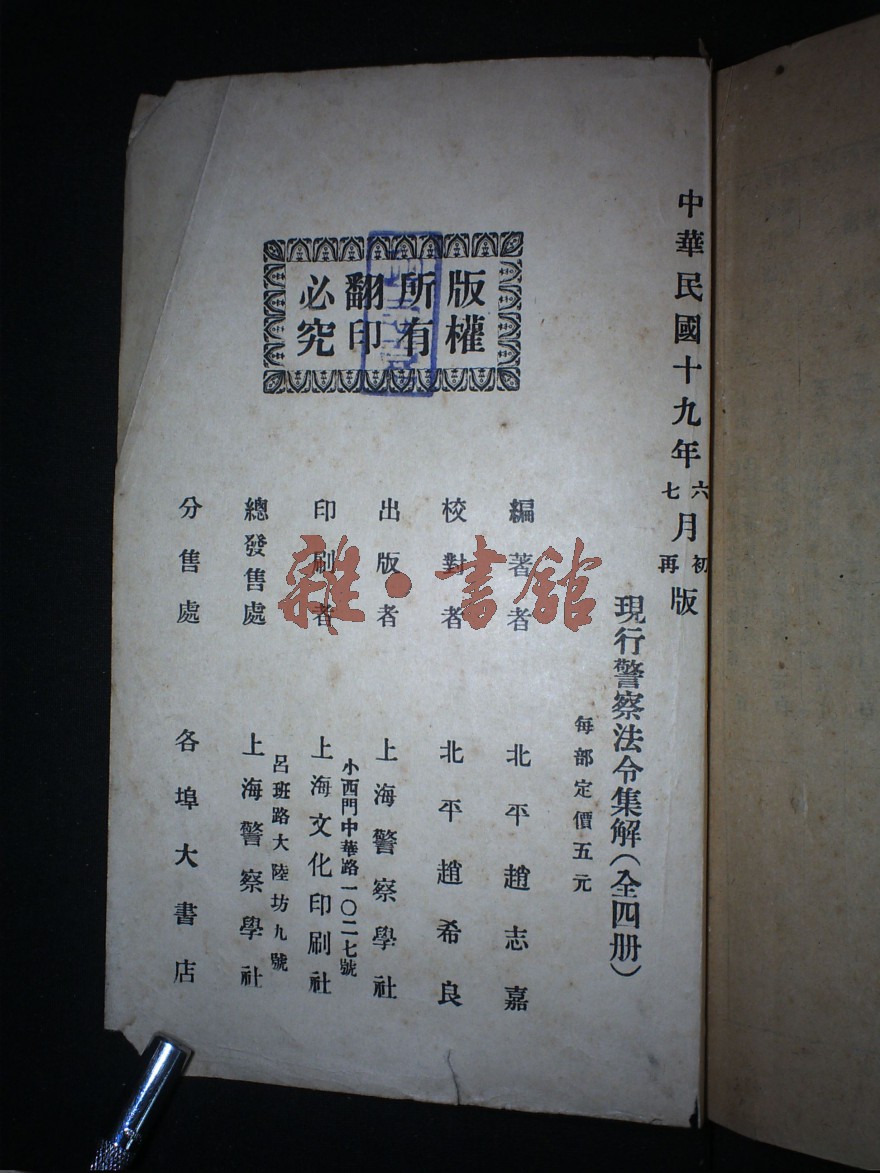 中華民國十九年六七月初再版
現行警察法令集解(全四册)
每部定價五元
版權
所有
翻印
必究
編著者 北平趙志嘉
校對者 北平趙希良
出版者 上海警察學社
小西門中華路一〇二七號
印刷者 上海文化印刷社
呂班路大陸坊九號
總發售處 上海警察學社
分售處 各埠大書店
雜·書館